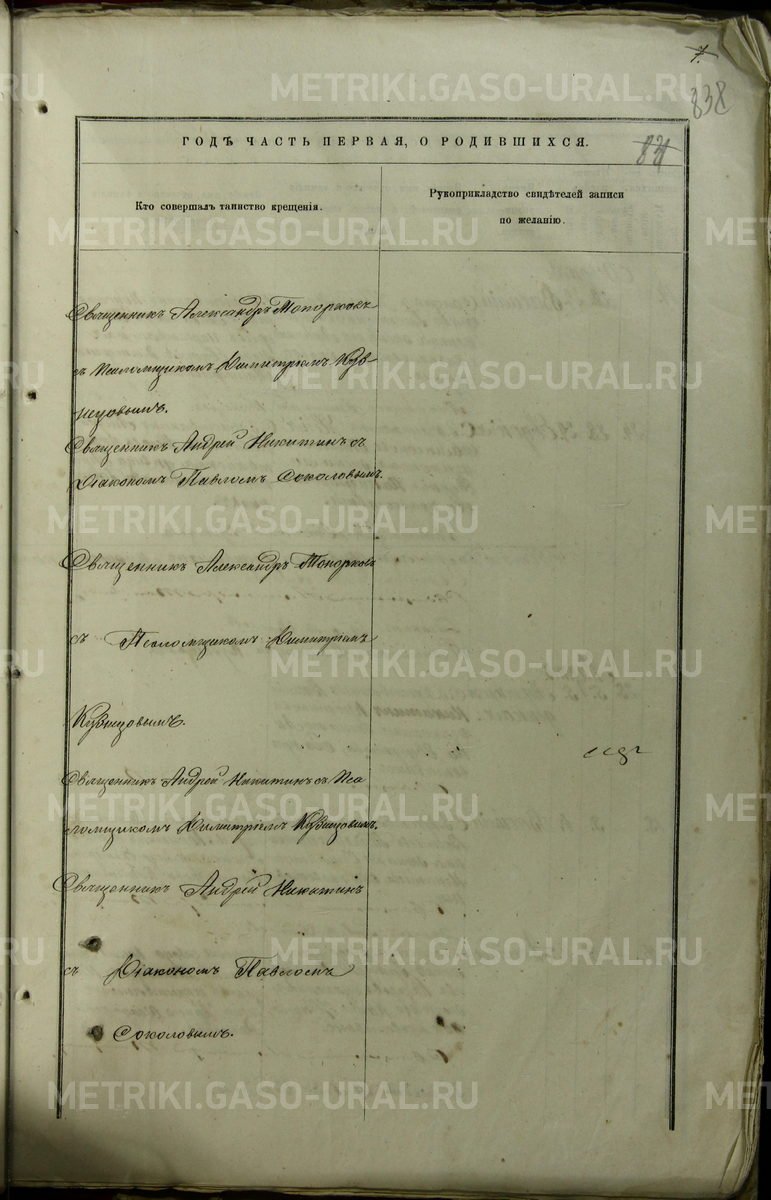 7.
838
ГОДЪ ЧАСТЬ ПЕРВАЯ, О РОДИВШИХСЯ.
Кто совершалъ таинство крещенія.
Рукоприкладство свидѣтелей записи
по желанію.
Священникъ Александръ Топорковъ
съ Псаломщикомъ Димитріемъ Куз-
нецовымъ.
Священникъ Андрей Никитинъ съ
Діакономъ Павломъ Соколовымъ.
Священникъ Александръ Топорковъ
съ Псаломщикомъ Димитріемъ
Кузнецовымъ.
Священникъ Андрей Никитинъ съ Пса
ломщикомъ Димитріемъ Кузнецовымъ.
Священникъ Андрей Никитинъ
съ Діакономъ Павломъ
Соколовымъ.
METRIKI.GASO-URAL.RU